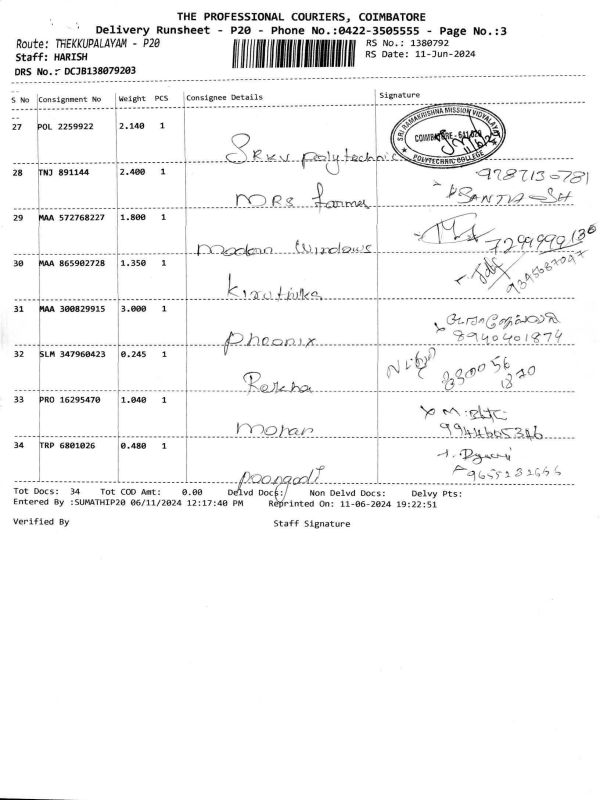 THE PROFESSIONAL COURIERS, COIMBATORE
Delivery Runsheet - P20 - Phone No.:0422-3505555 - Page No.:3
Route: THEKKUPALAYAM - P20
RS No.: 1380792
Staff: HARISH
RS Date: 11-Jun-2024
DRS No.: DCJB138079203
S No Consignment No Weight PCS Consignee Details Signature
27 POL 2259922 2.140 1 SRKV polytechnic
SRI RAMAKRISHNA MISSION VIDYALAYA
COIMBATORE - 641 020
POLYTECHNIC COLLEGE
28 TNJ 891144 2.400 1 MRS farmer
SANTHOSH
29 MAA 572768227 1.800 1 modern windows
7299999136
30 MAA 865902728 1.350 1 Kiruthika
9345087047
31 MAA 300829915 3.000 1 Phoenix
8940401874
32 SLM 347960423 0.245 1 Rekha
33 PRO 16295470 1.040 1 mohan
34 TRP 6801026 0.480 1 poongodi
Tot Docs: 34 Tot COD Amt: 0.00 Delvd Docs: Non Delvd Docs: Delvy Pts:
Entered By :SUMATHIP20 06/11/2024 12:17:40 PM Reprinted On: 11-06-2024 19:22:51
Verified By Staff Signature